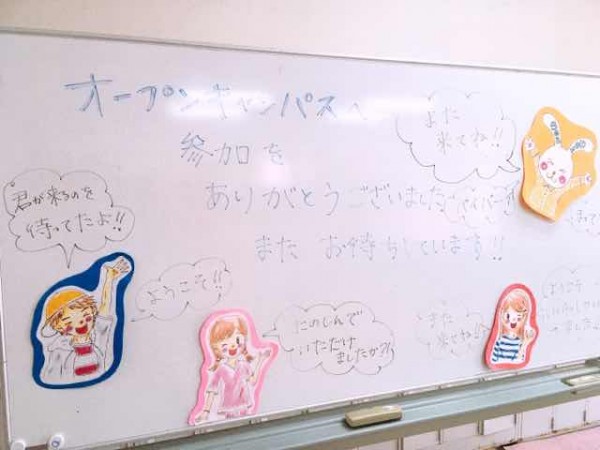 オープンキャンパスへ
参加を
ありがとうございました
また お待ちしています!!
また
来てね!!
君が来るのを
待ってたよ!!
ようこそ!!
たのしんで
いただけ
ましたか?!
また
来てね
ようこそ